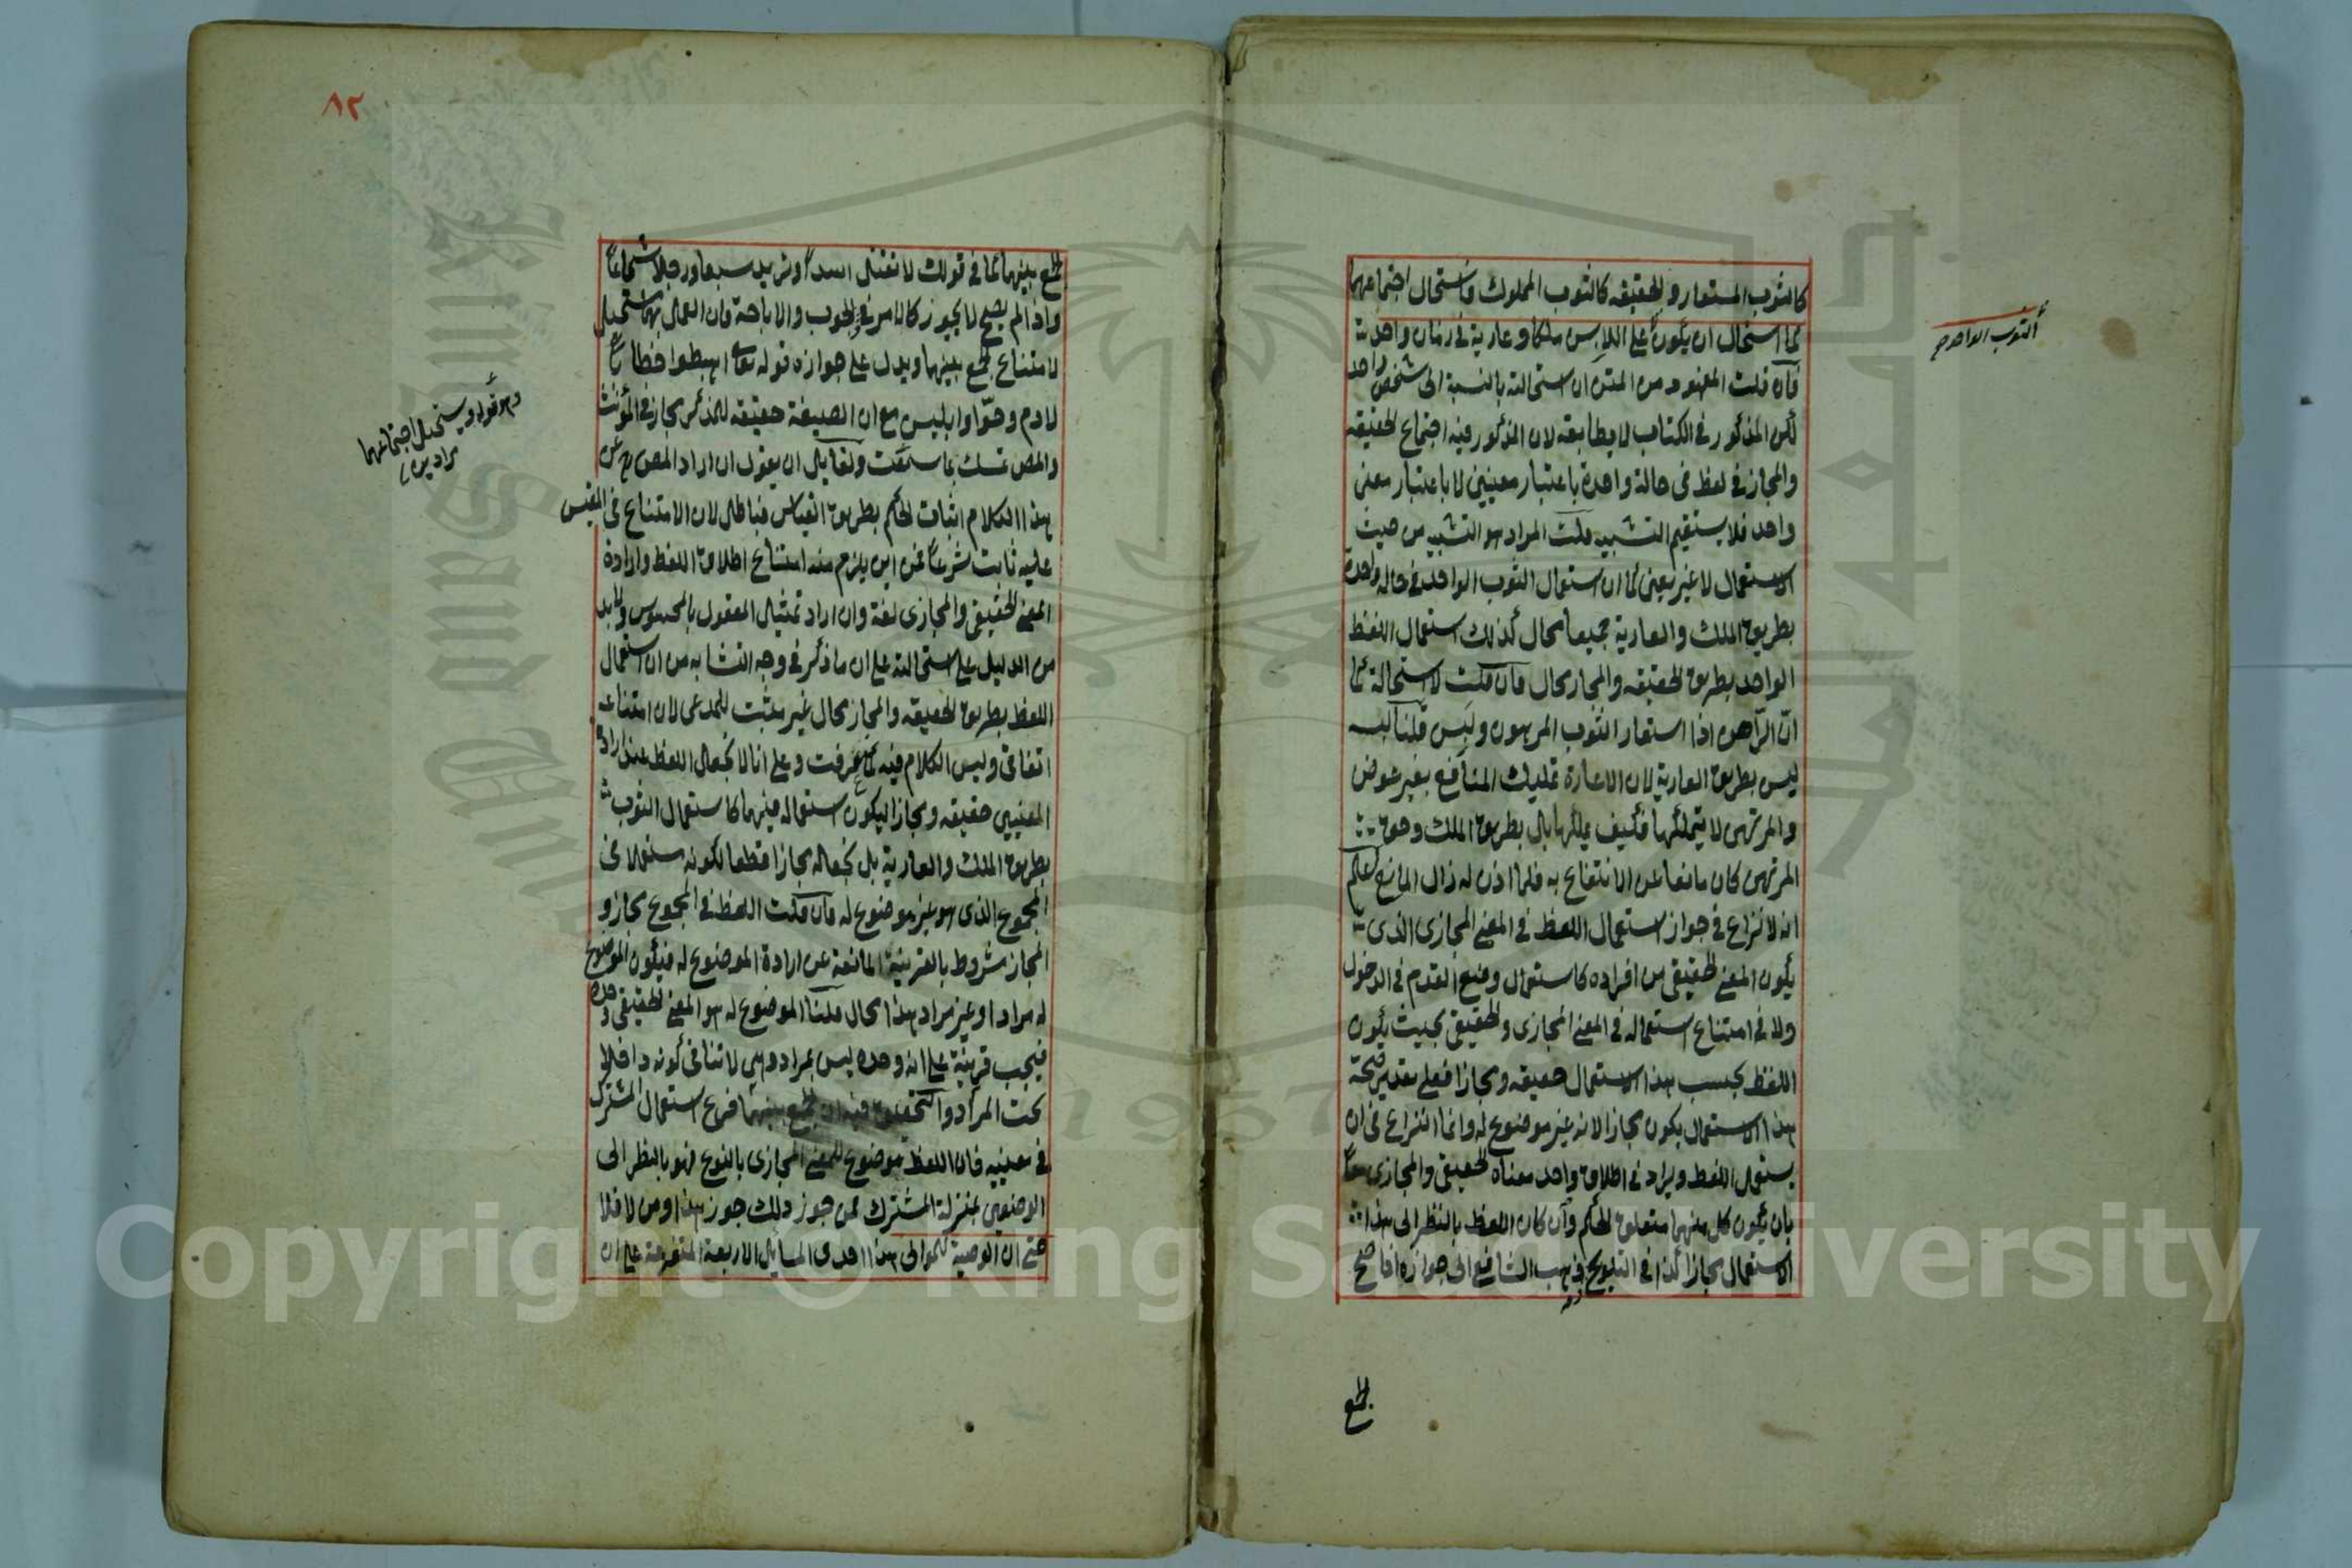 كالثوب المستعار والحقيقه كالثوب المملوك فاستحال اجتماعهما
كما استحال ان يكون على اللابس ملكا وعارية في زمان واحد
الثوب الواحد صح
فان قلت المفهوم من المتن ان استحالته بالنسبة الى شخص واحد
لكن المذكور في الكتاب لا يطابقه لان المذكور فيه اجتماع الحقيقه
والمجاز في لفظ في حالة واحدة باعتبار معنيين لا باعتبار معنى
واحد فلا يستقيم التشبيه قلت المراد هو التشبيه من حيث
الاستعمال لا غير يعنى كما ان استعمال الثوب الواحد في حالة واحدة
بطريق الملك والعارية جميعا محال كذلك استعمال اللفظ
الواحد بطريق الحقيقه والمجاز محال فان قلت لا استحالة كما
ان الراهن اذا استعار الثوب المرهون ولبس قلنا لبسه
ليس بطريق العارية لان الاعارة تمليك المنافع بغير عوض
والمرتهن لا يتملكها فكيف يملكها بل بطريق الملك وحق
المرتهن كان مانعا عن الانتفاع به فلما اذن له زال المانع اعلم
انه لا نزاع في جواز استعمال اللفظ في المعنى المجازى الذى
يكون المعنى الحقيقى من افراده كاستعمال وضع القدم في الدخول
ولا في امتناع استعماله في المعنى المجازى والحقيقى بحيث يكون
اللفظ بحسب هذا الاستعمال حقيقه ومجازا فعلى تقدير صحة
هذا الاستعمال يكون مجازا لانه غير موضوع له وانما النزاع في ان
يستعمل اللفظ ويراد في اطلاق واحد معناه الحقيقى والمجازى معا
بان يكون كل منهما متعلق الحكم وان كان اللفظ بالنظر الى هذا
الاستعمال مجازا كذا في التلويح فذهب الشافعى الى جوازه اذا صح
الجمع
٨٢
الجمع بينهما كما في قولك لا تقتل اسدا وتريد سبعا ورجلا شجاعا
واذا لم يصح لا يجوز كالامر في الوجوب والاباحة فان العمل بهما مستحيل
لامتناع الجمع بينهما ويدل على جوازه قوله تعالى اهبطوا خطابا
لادم وحوا وابليس مع ان الصيغة حقيقه للمذكر مجاز في المؤنث
والمص تمسك بما سمعت ولقايل ان يقول ان اراد المص رح من
وهو قوله ويستحيل اجتماعهما
مرادين
هذا الكلام اثبات الحكم بطريق القياس فباطل لان الامتناع في المقيس
عليه ثابت شرعا فمن اين يلزم منه امتناع اطلاق اللفظ وارادة
المعنى الحقيقى والمجازى لغة وان اراد تمثيل المعقول بالمحسوس فلا بد
من الدليل على استحالته على ان ما ذكر في وجه التشابه من ان استعمال
اللفظ بطريق الحقيقه والمجاز محال غير مثبت للمدعى لان امتناعه
اتفاقى وليس الكلام فيه كما عرفت وعلى انا لا نجعل اللفظ عند ارادة
المعنيين حقيقه ومجازا ليكون استعماله فيهما كاستعمال الثوب
بطريق الملك والعارية بل نجعله مجازا قطعا لكونه مستعملا في
المجموع الذى هو غير موضوع له فان قلت اللفظ في المجموع مجاز و
المجاز مشروط بالقرينة المانعة عن ارادة الموضوع له فيكون الموضوع
له مرادا وغير مراد هذا محال قلنا الموضوع له هو المعنى الحقيقى وحده
فيجب قرينة على انه وحده ليس بمراد وهى لا تنافى كونه داخلا
تحت المراد والتحقيق فيه ان الجمع بينهما فرع استعمال المشترك
في معنييه فان اللفظ موضوع للمعنى المجازى بالنوع فهو بالنظر الى
الوضعين بمنزلة المشترك فمن جوز ذلك جوز هذا ومن لا فلا
حتى ان الوصية للموالى هذا احدى المسايل الاربعة المتفرعة على ان
Copyright © King Saud University
1957